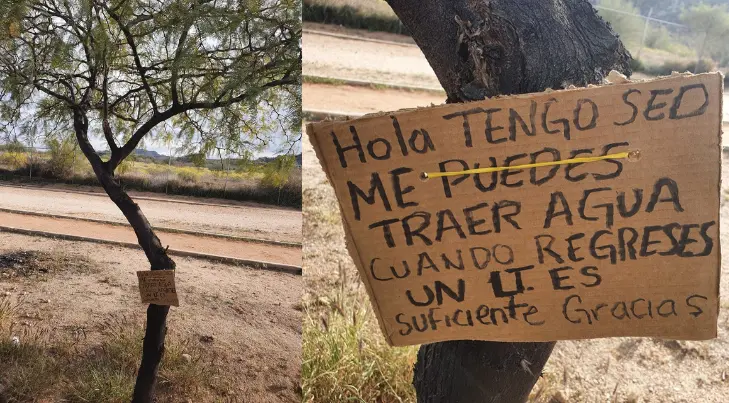 Hola TENGO SED
ME PUEDES
TRAER AGUA
CUANDO REGRESES
UN LT. ES
suficiente Gracias